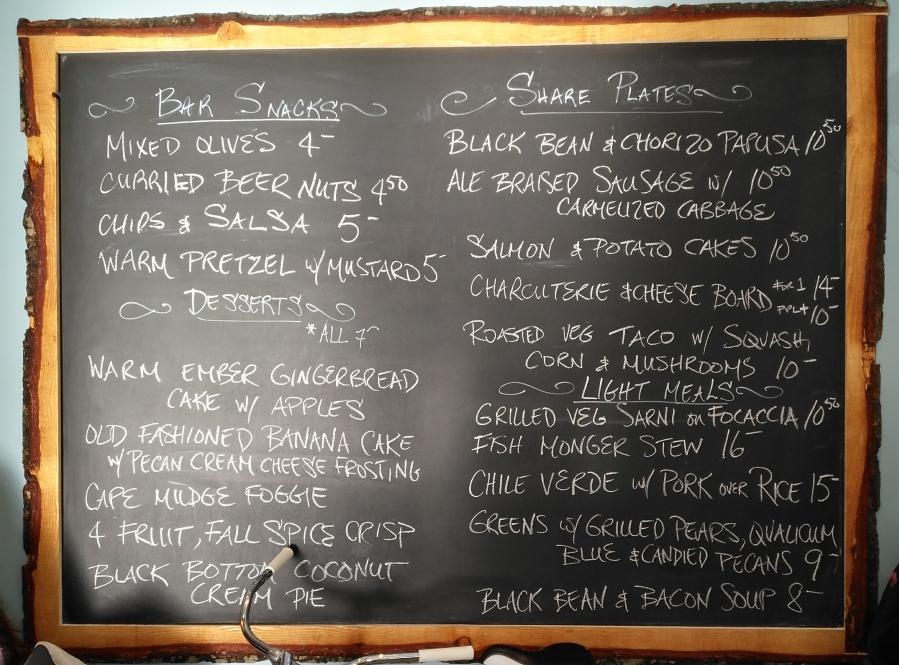 BAR SNACKS
MIXED OLIVES 4-
CURRIED BEER NUTS 450
CHIPS & SALSA 5-
WARM PRETZEL W/MUSTARD 5-
DESSERTS
*ALL 7-
WARM EMBER GINGERBREAD
CAKE W/ APPLES
OLD FASHIONED BANANA CAKE
W/ PECAN CREAM CHEESE FROSTING
CAPE MUDGE FOGGIE
4 FRUIT, FALL SPICE CRISP
BLACK BOTTOM COCONUT
CREAM PIE
SHARE PLATES
BLACK BEAN & CHORIZO PAPUSA 1050
ALE BRAISED SAUSAGE W/ 1050
CARMELIZED CABBAGE
SALMON & POTATO CAKES 1050
CHARCUTERIE & CHEESE BOARD FOR 1 14-
PPL+ 10-
ROASTED VEG TACO W/ SQUASH,
CORN & MUSHROOMS 10-
LIGHT MEALS
GRILLED VEG SARNI ON FOCACCIA 1050
FISH MONGER STEW 16-
CHILE VERDE W/ PORK OVER RICE 15-
GREENS W/ GRILLED PEARS, QUALICUM
BLUE & CANDIED PECANS 9-
BLACK BEAN & BACON SOUP 8-